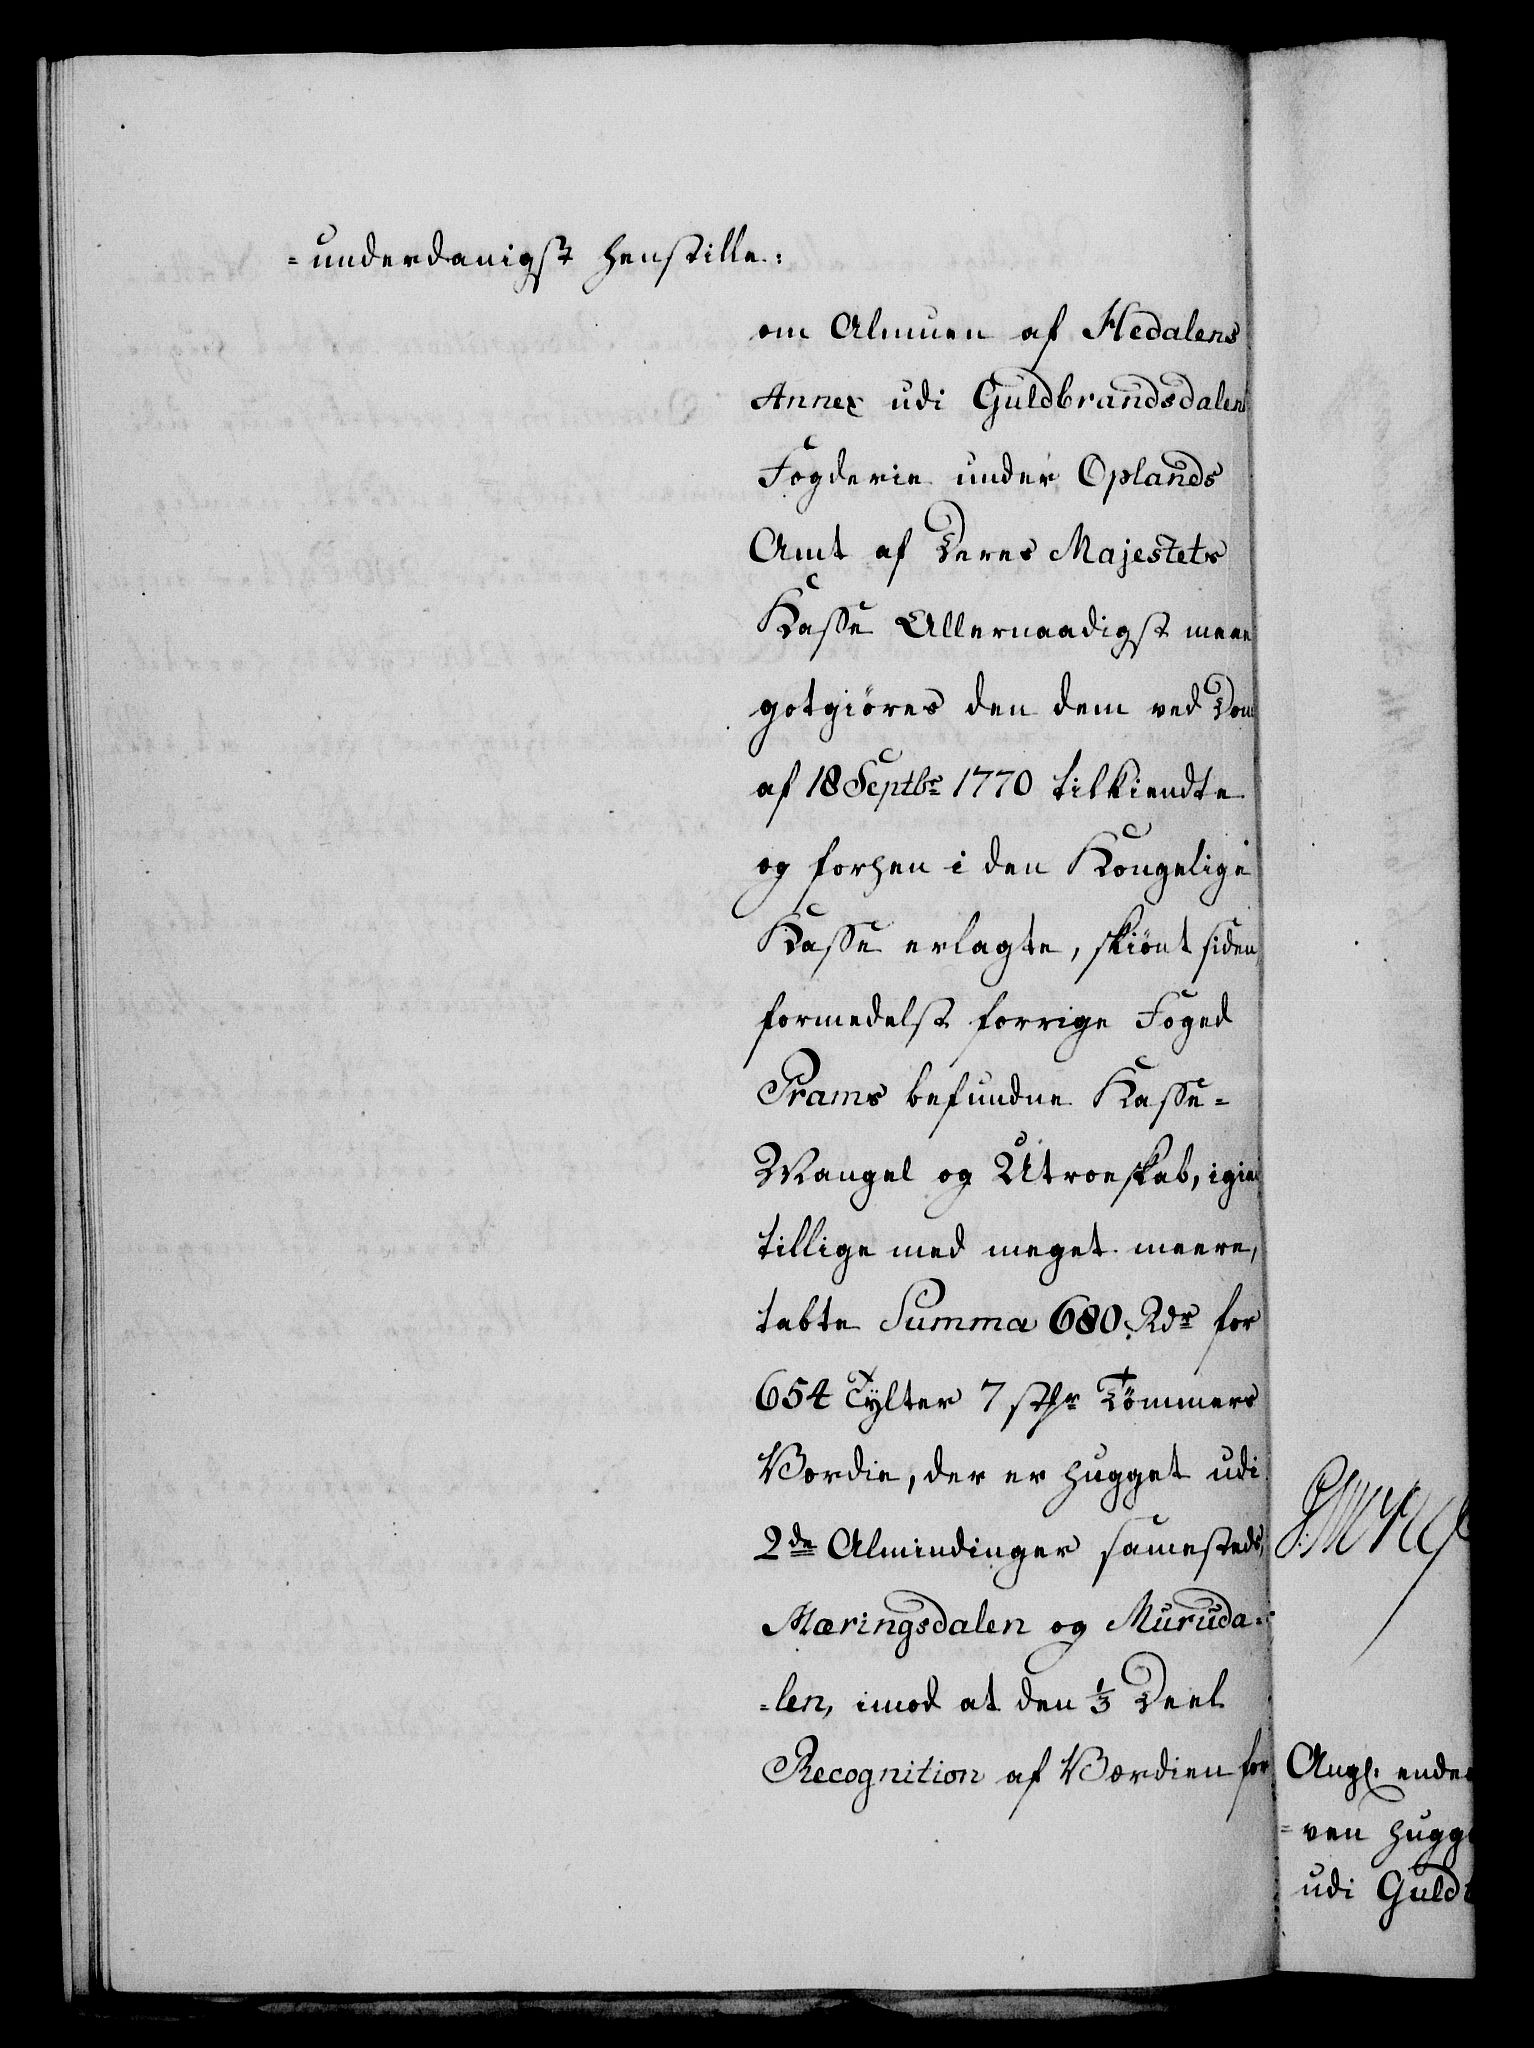 =underdanigst henstille:
om Almuen af Hedalens
Annex udi Guldbrandsdalens
Fogderie under Oplands
Amt af Deres Majestets
Kasse Allernaadigst maae
gotgiøres den dem ved Dom
af 18 Septbr 1770 tilkiendte
og forhen i den Kongelige
Kasse erlagte, skiønt siden,
formedelst forrige Foged
Prams befundne Kasse=
Mangel og Utroeskab, igien
tillige med meget meere,
tabte Summa 680 Rdr for
654 Tylter 7 stkr Tømmers
Værdie, der er hugget udi
2de Almindinger samesteds,
Mæringsdalen og Muruda=
=len, imod at den 1/3 Deel
Recognition af Værdien for
Angl: ende
=ven hugg
udi Guld